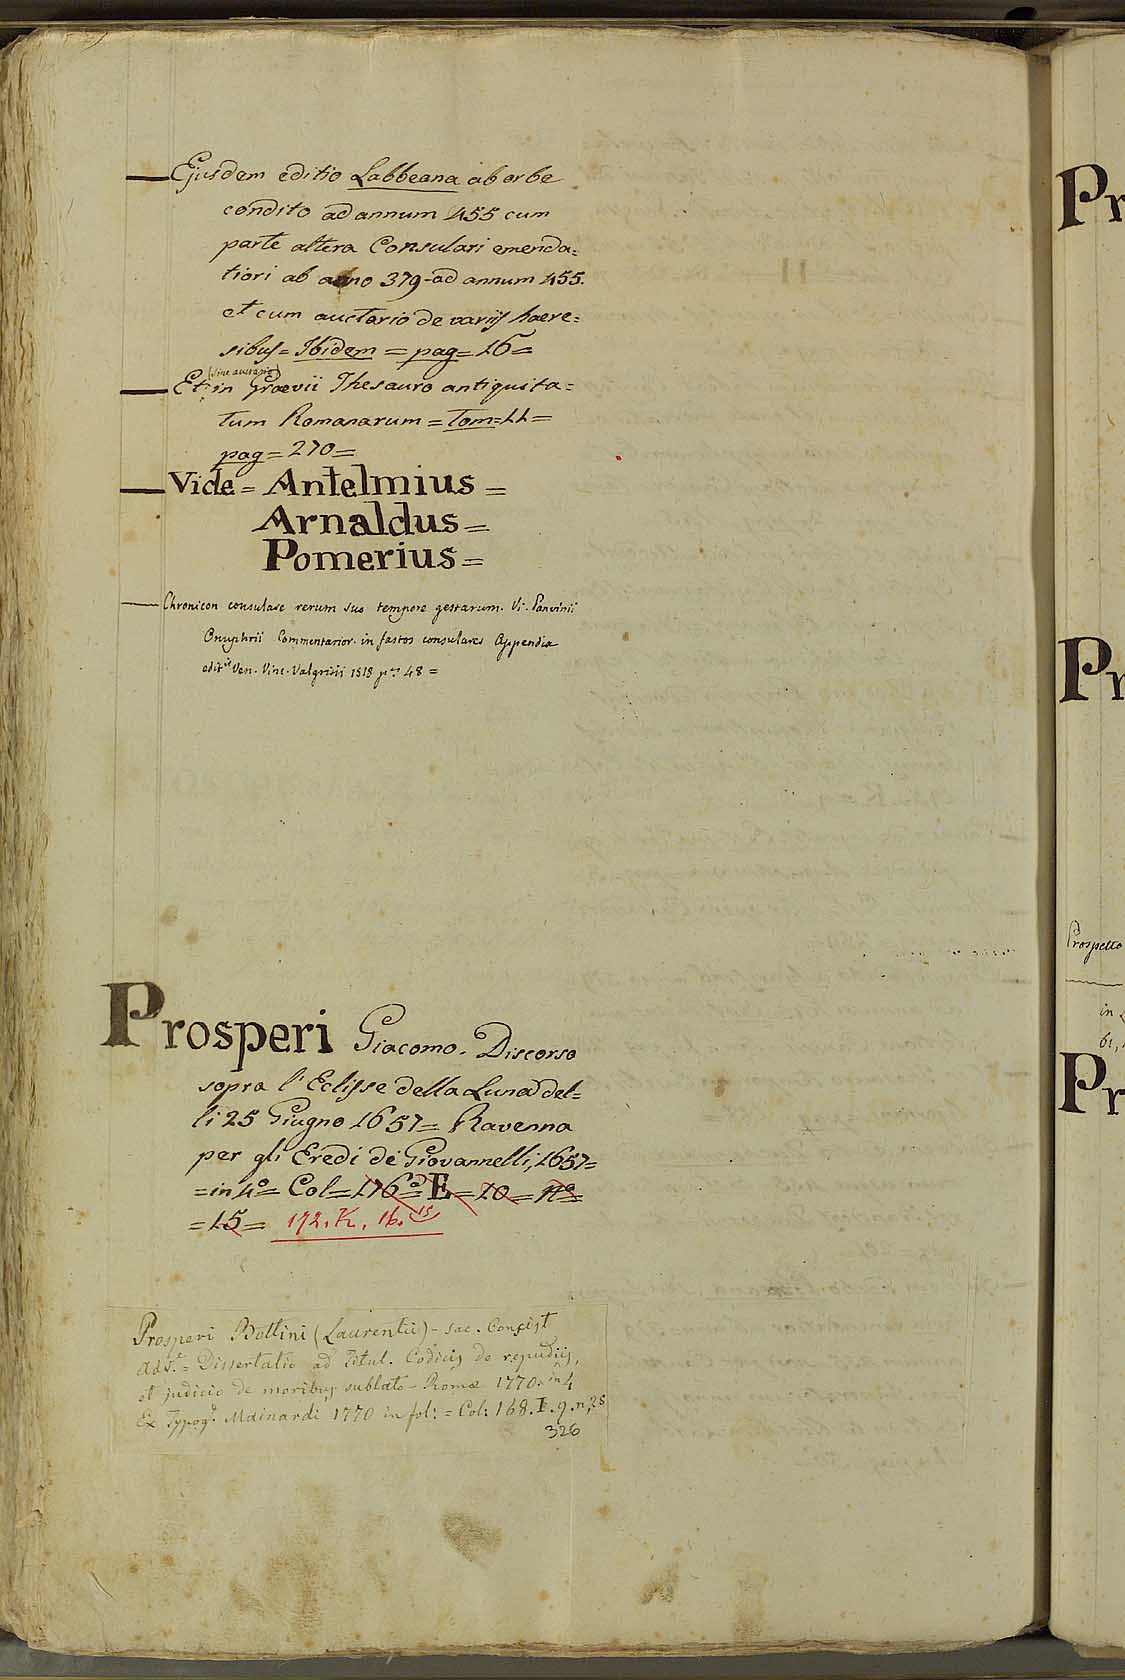 Ejusdem editio Labbeana ab orbe
condito ad annum 455 cum
parte altera Consulari emenda=
tiori ab anno 379 - ad annum 455.
et cum auctario de variis haere=
sibus = Ibidem = pag = 16 =
(sine auctario)
Et in Graevii Thesauro antiquita=
tum Romanarum = Tom = 11 =
pag = 270 =
Vide = Antelmius =
Arnaldus =
Pomerius =
Chronicon consulare rerum suo tempore gestarum. Vi. Panvinii
Onuphrii Commentarior. in fastos consulares Appendix
edit Ven. Vinc. Valgrisii 1518 p 48 =
Prosperi Giacomo. Discorso
sopra l'Eclisse della Luna del=
li 25 Giugno 1657 = Ravenna
per gli Eredi de' Giovannelli, 1657 =
= in 4° = Col = 176 = E = 10 = N° =
= 15 = 172. K. 16. 15
Prosperi Bottini (Laurentii) - sac. Consist
adv. = Dissertatio ad Titul. Codicis de repudiis,
et judicio de moribus sublato - Romae 1770. in 4
Ex Typog. Mainardi 1770 in fol: = Col: 168. E. 9. n, 25
326
Pr
Pr
Prospetto
in
61,
Pr